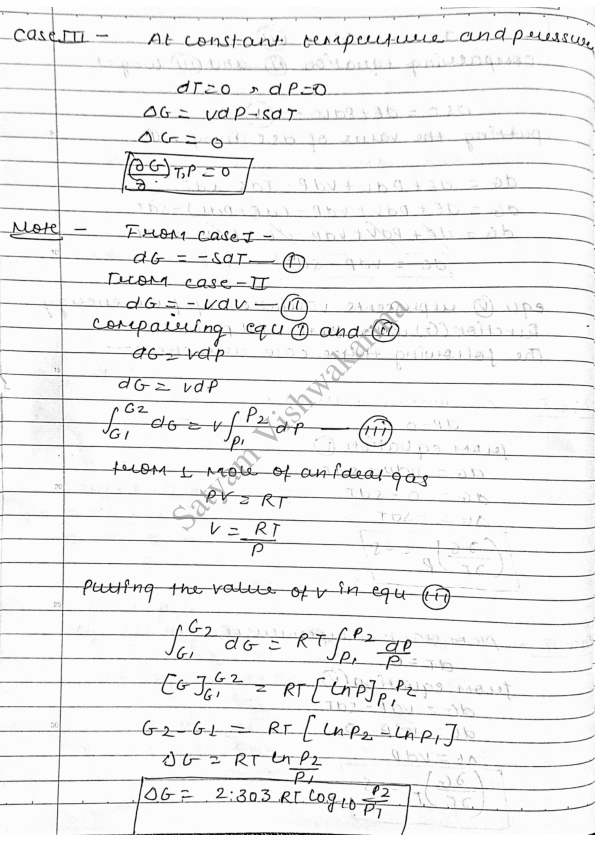 Case III - At constant temperture and pressure
dT=0 , dP=0
ΔG = vdP-sdT
ΔG = 0
(∂G)T,P = 0
∂
Note - From case I -
dG = -sdT — (I)
From case-II
dG = -vdv — (II)
compairing equ (I) and (II)
dG = vdP
dG = vdP
∫G1^G2 dG = v∫P1^P2 dP — (III)
from 1 mole of an ideal gas
PV = RT
V = RT/P
putting the value of v in equ (III)
∫G1^G2 dG = RT∫P1^P2 dP/P
[G]G1^G2 = RT [lnP]P1^P2
G2-G1 = RT [lnP2-lnP1]
ΔG = RT ln P2/P1
ΔG = 2.303 RT log10 P2/P1
Satyam Vishwakarma